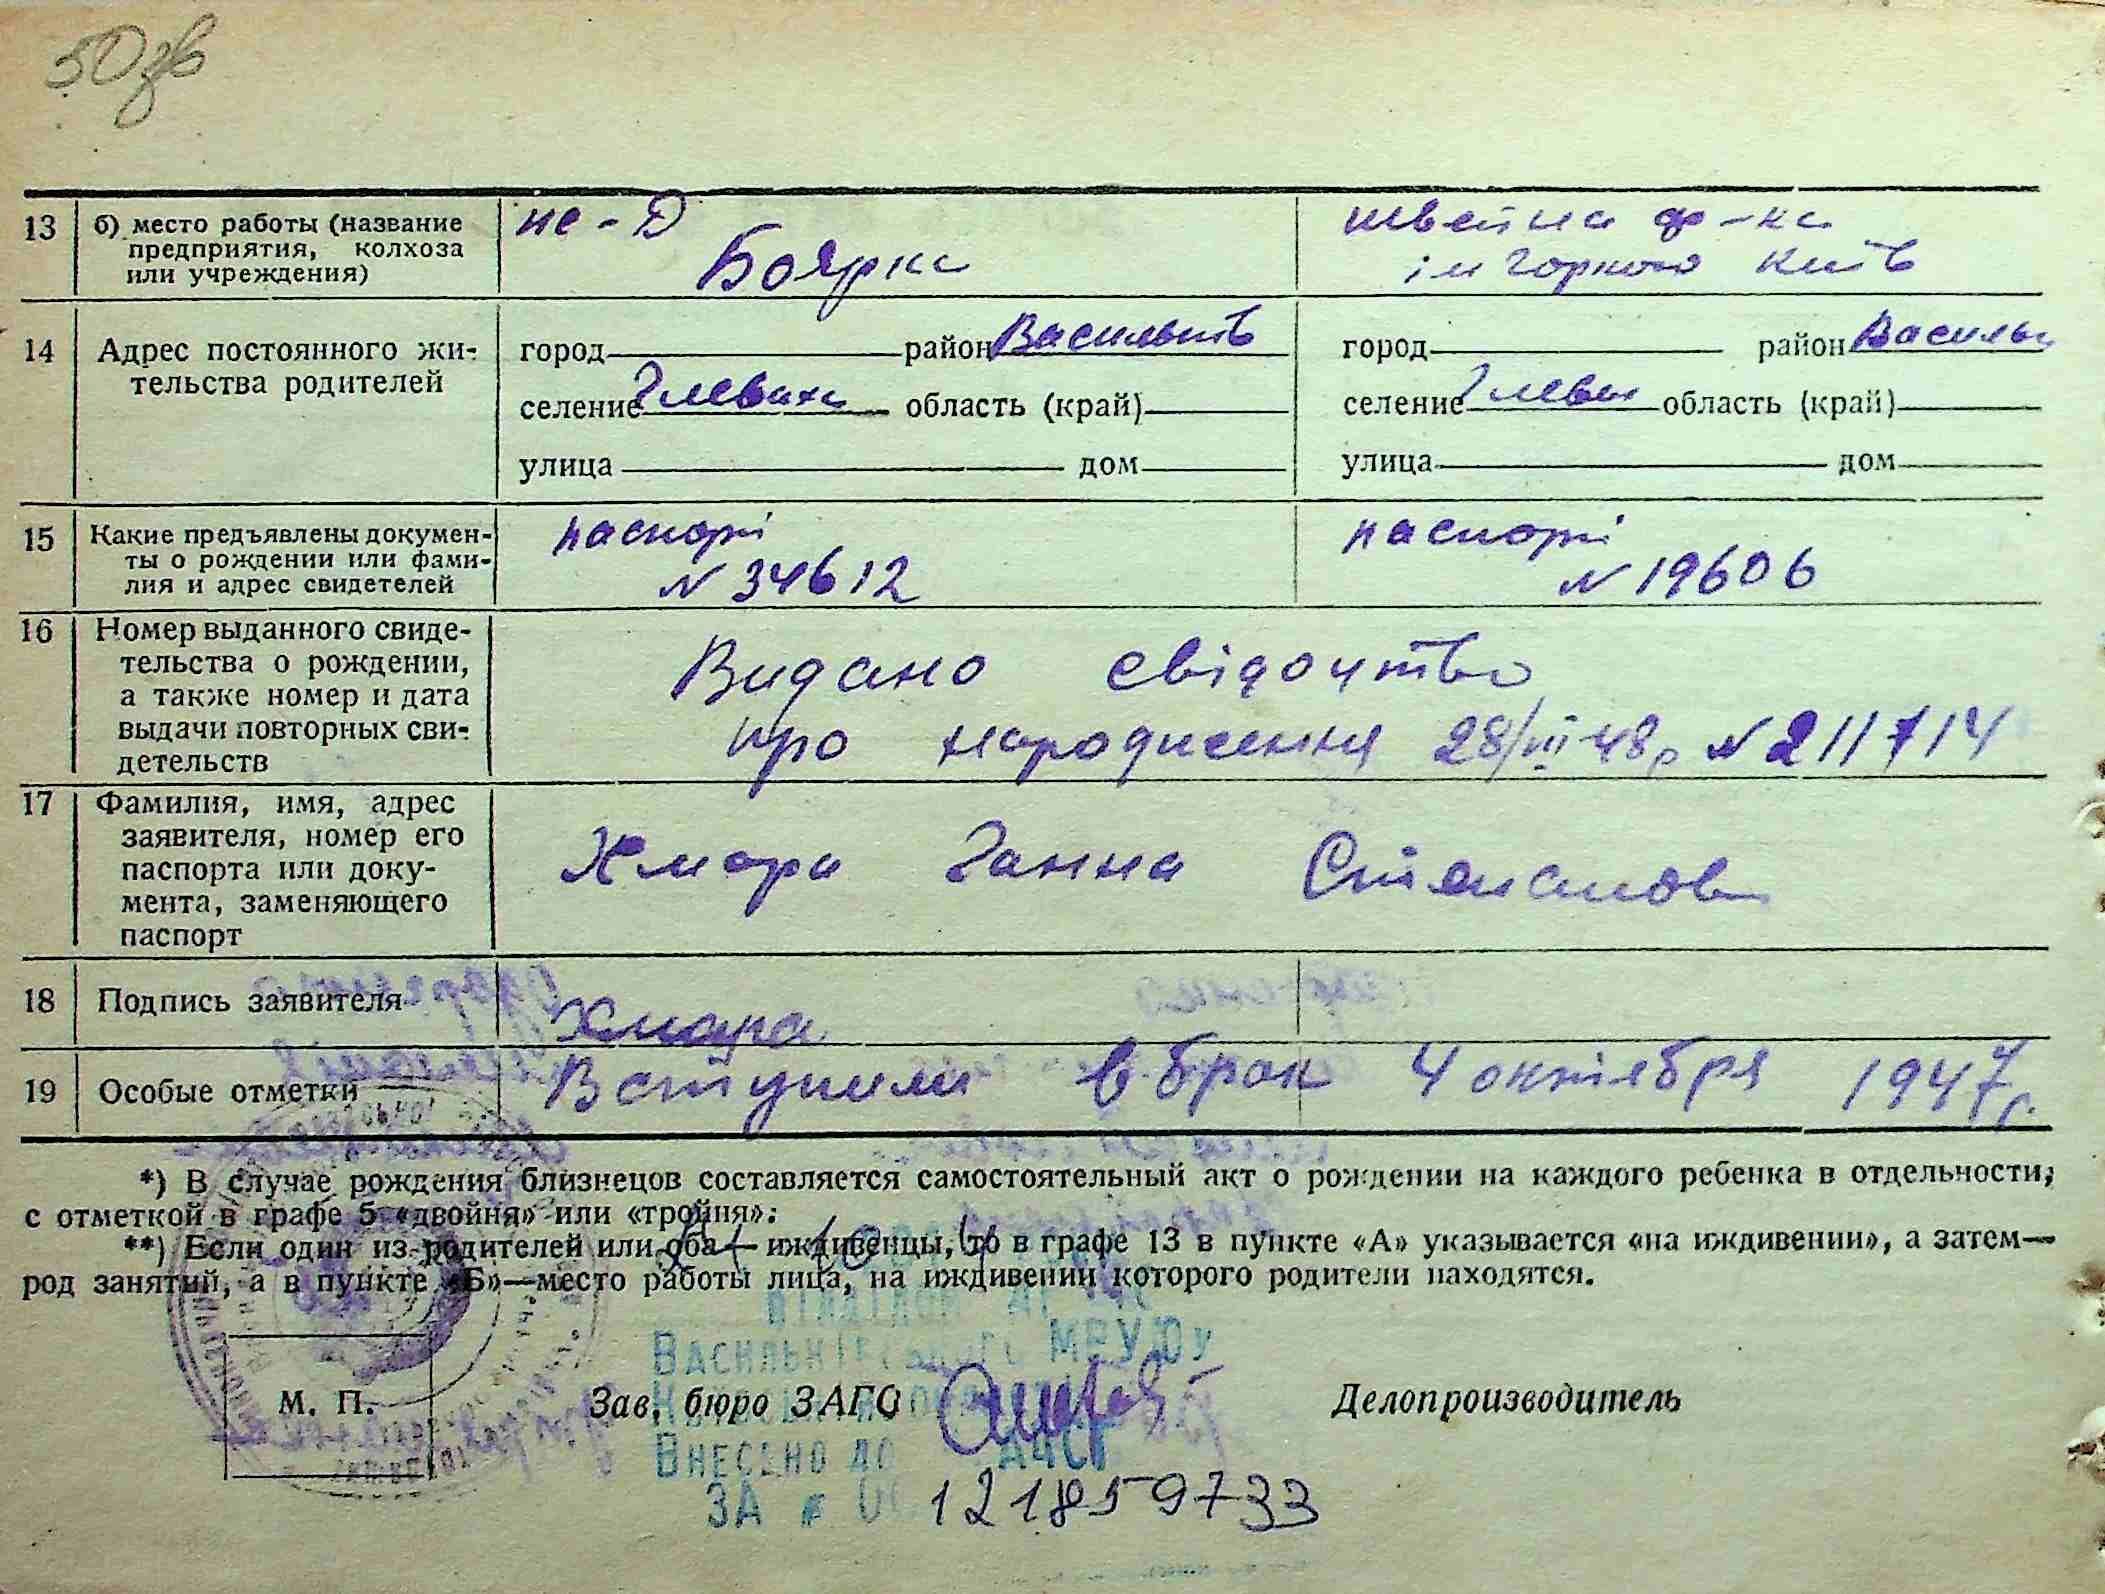 50зв
13 б) место работы (название не-Д швейна ф-ка
предприятия, колхоза Боярка ім Горького Київ
или учреждения)
14 Адрес постоянного жи- город район Васильків город район Василь
тельства родителей
селение Глеваха область (край) селение Глевах область (край)
улица дом улица дом
15 Какие предъявлены докумен- паспорт паспорт
ты о рождении или фами- N 34612 N 19606
лия и адрес свидетелей
16 Номер выданного свиде- Видано свідоцтво
тельства о рождении,
а также номер и дата про народження 28/VII 48р N 211714
выдачи повторных сви-
детельств
17 Фамилия, имя, адрес
заявителя, номер его Хмара Ганна Степанов
паспорта или доку-
мента, заменяющего
паспорт
18 Подпись заявителя Хмара
19 Особые отметки Вступили в брак 4 октября 1947 г.
*) В случае рождения близнецов составляется самостоятельный акт о рождении на каждого ребенка в отдельности,
с отметкой в графе 5 «двойня» или «тройня».
**) Если один из родителей или оба — иждивенцы, то в графе 13 в пункте «А» указывается «на иждивении», а затем—
род занятий, а в пункте «Б»—место работы лица, на иждивении которого родители находятся.
Васильківського МРУЮ
М. П. Зав. бюро ЗАГС Делопроизводитель
Внесено до ДРАЦСГ
ЗА № 00121859733